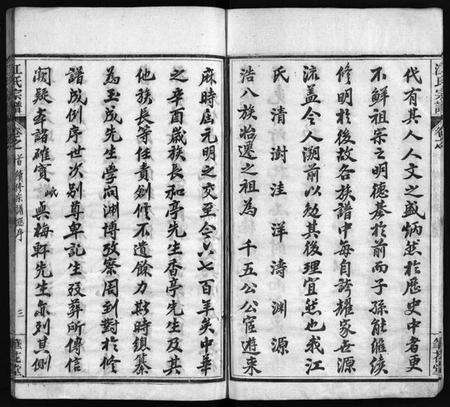 江氏宗譜
代有其人人文之盛炳然於歷史中者更
不鮮祖宗之明德基於前而子孫能繼續
修明於後故各族譜中每自誇耀家世源
流蓋令人溯前以勉其後理宜然也我江
氏清澍洼洋濤淵源
浩八族始遷之祖為千五公公宦遊來
麻時屆元明之交至今六七百年矣中華
之辛酉歲族長和亭先生香亭先生及其
他族長等任責創修不遺餘力斯時鎮纂
為玉成先生學問淵博攷察周到對於修
譜成例序世次別尊卑記生歿葬所傳信
闕疑考諮確實峨與梅軒先生亦列其側
江氏宗譜
卷之首
續修宗譜總序
三